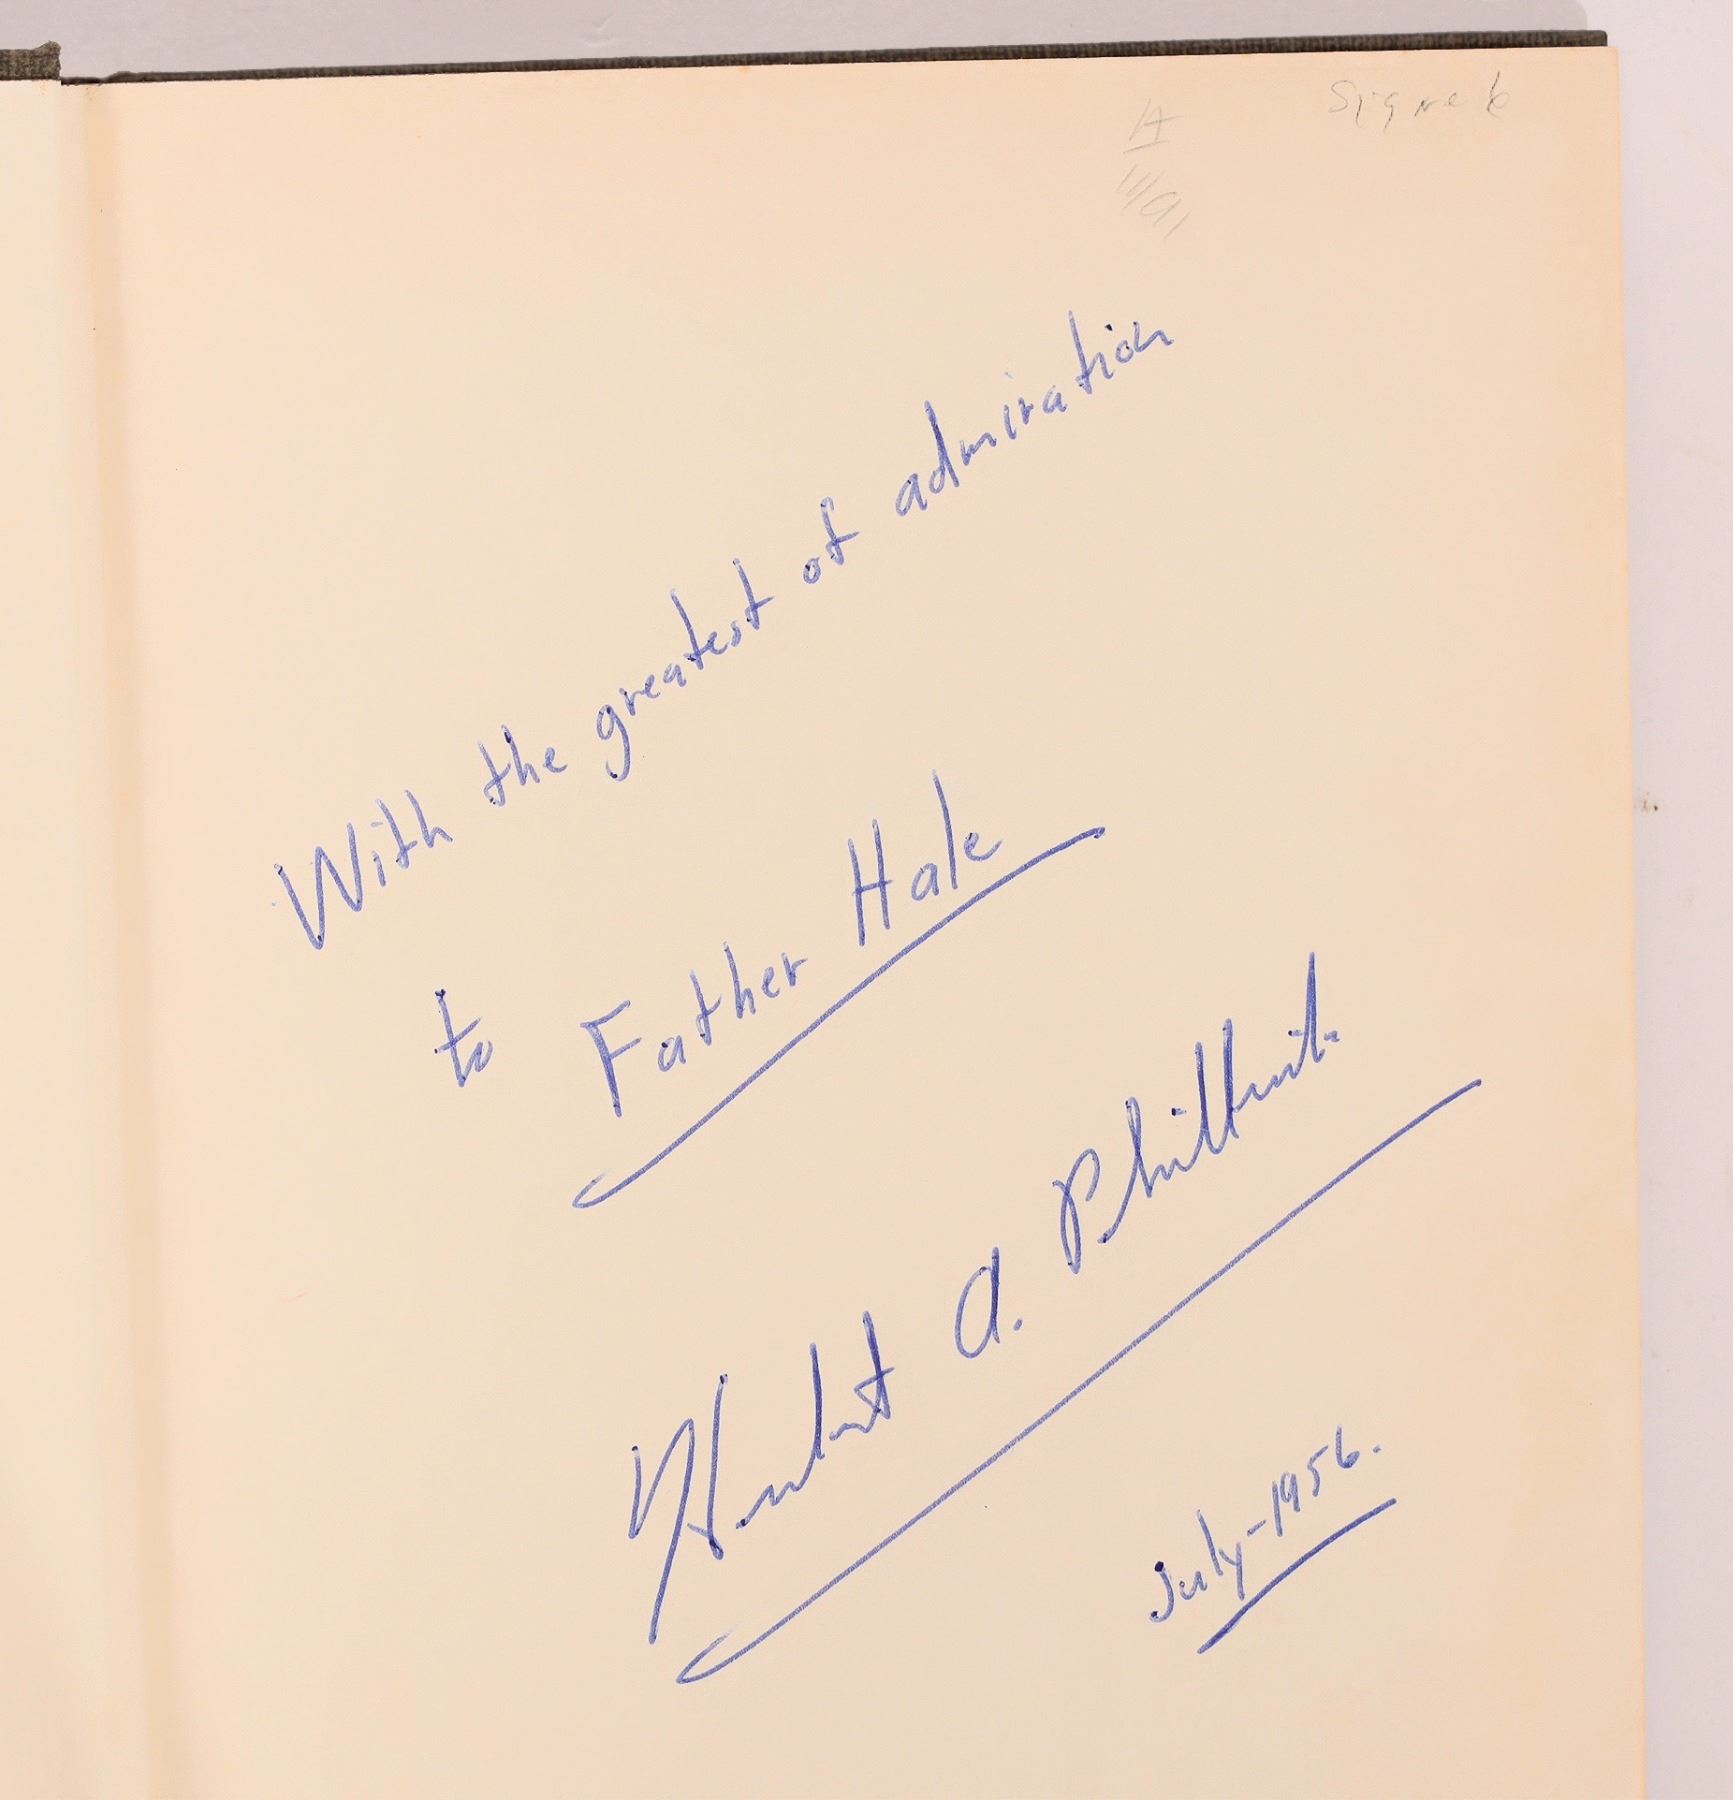 Signed
With the greatest of admiration
to Father Hale
Herbert A. Philbrick
July-1956.